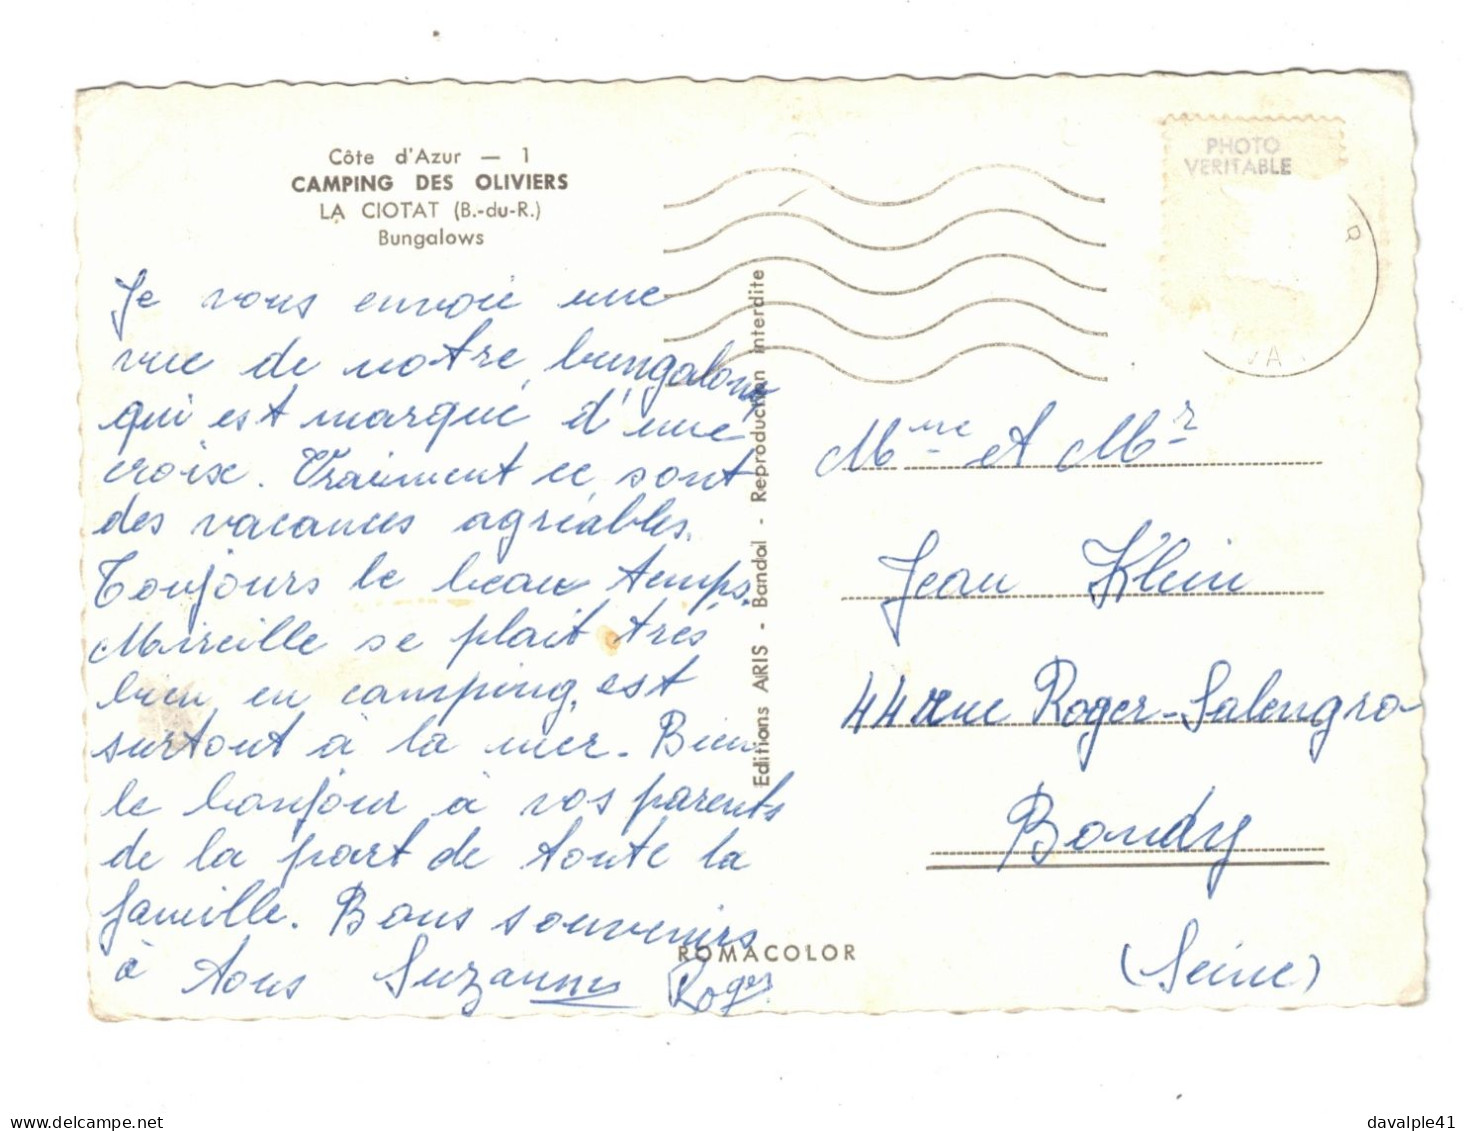 Côte d'Azur — 1
CAMPING DES OLIVIERS
LA CIOTAT (B.-du-R.)
Bungalows
Je vous envoie une
vue de notre bungalow
qui est marqué d'une
croix. Vraiment ce sont
des vacances agréables.
Toujours le beau temps.
Mireille se plait très
bien en camping, est
surtout à la mer. Bien
le bonjour à vos parents
de la part de toute la
famille. Bons souvenirs
à tous Suzanne Roger
Editions ARIS - Bandol - Reproduction interdite
ROMACOLOR
PHOTO
VERITABLE
VA
Mme et Mr
Jean Klein
44 rue Roger-Salengro
Bondy
(Seine)
www.delcampe.net
davalple41